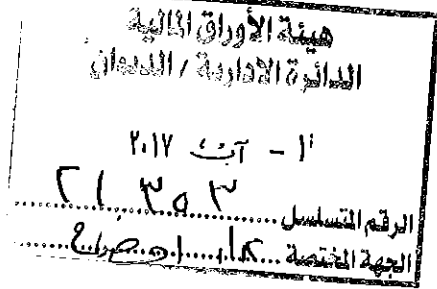 هيئة الأوراق المالية
الدائرة الادارية / الديوان
٠١ - آب ٢٠١٧
الرقم المتسلسل ٣٥٣ ٢١
الجهة المختصة الافصاح